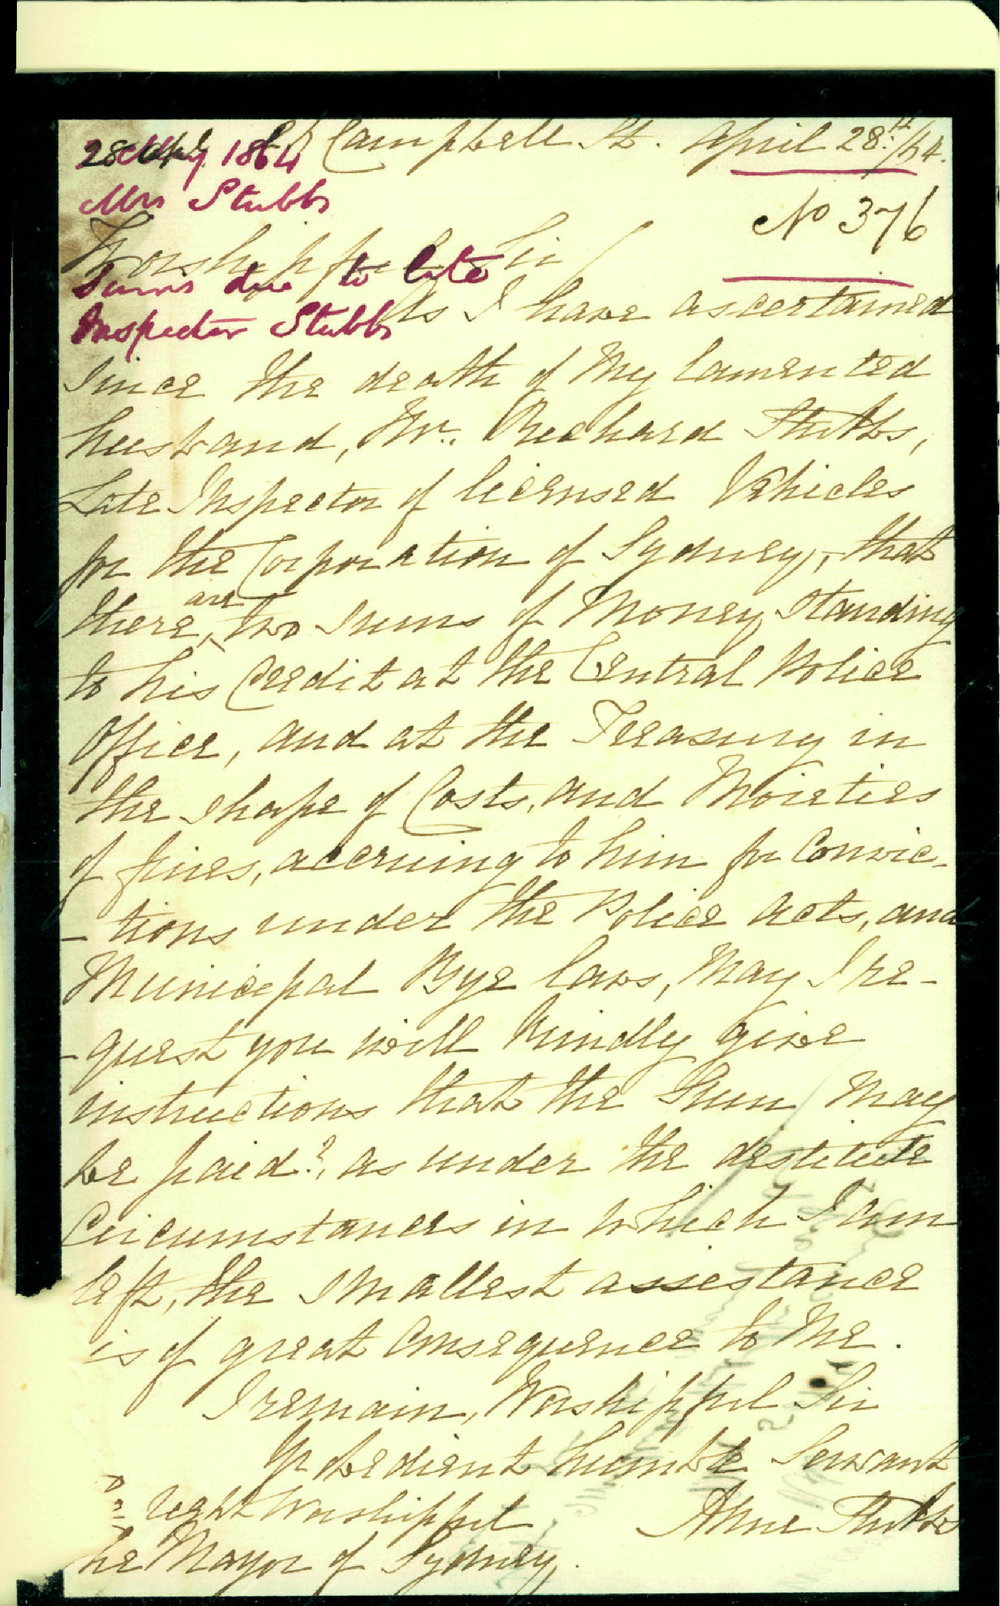 Campbell St. April 28th/64.
28 May 1864
Mrs Stubbs
No 376
Worshipful Sir
Sums due to late
Inspector Stubbs
As I have ascertained
since the death of My lamented
husband, Mr. Richard Stubbs,
Late Inspector of licensed Vehicles
for the Corporation of Sydney, that
there are two sums of Money standing
to his Credit at the Central Police
Office, and at the Treasury in
the shape of Costs, and Moieties
of fines, accruing to him for Convic-
-tions under the Police Acts, and
Municipal Bye laws, May I re-
-quest you will kindly give
instructions that the Sum May
be paid?, as under the destitute
Circumstances in which I am
left, the smallest assistance
is of great Consequence to Me.
I remain, Worshipful Sir
Yr obedient humble Servant
Anne Stubbs
Right Worshipful
The Mayor of Sydney.